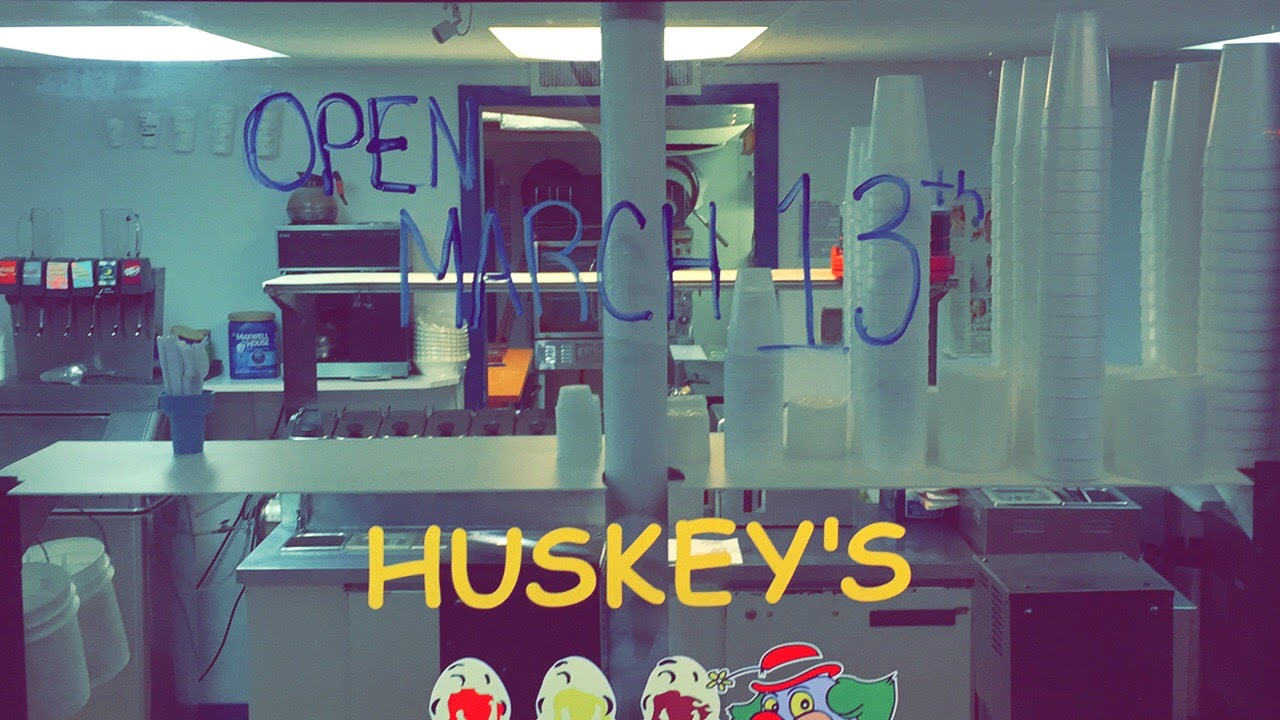 OPEN
MARCH 13th
MAXWELL
HOUSE
HUSKEY'S